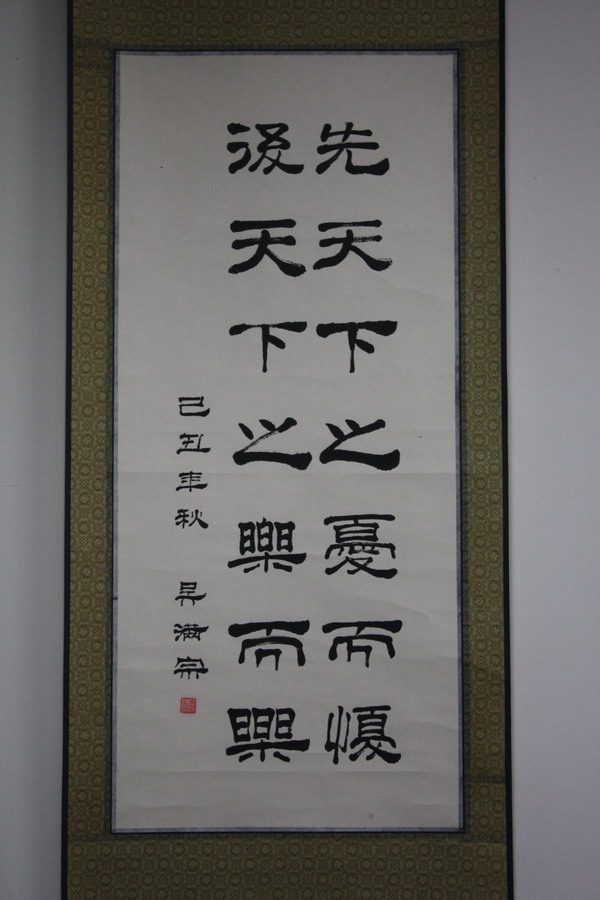 先天下之憂而懮
後天下之樂而樂
己丑年秋 吴滿宗